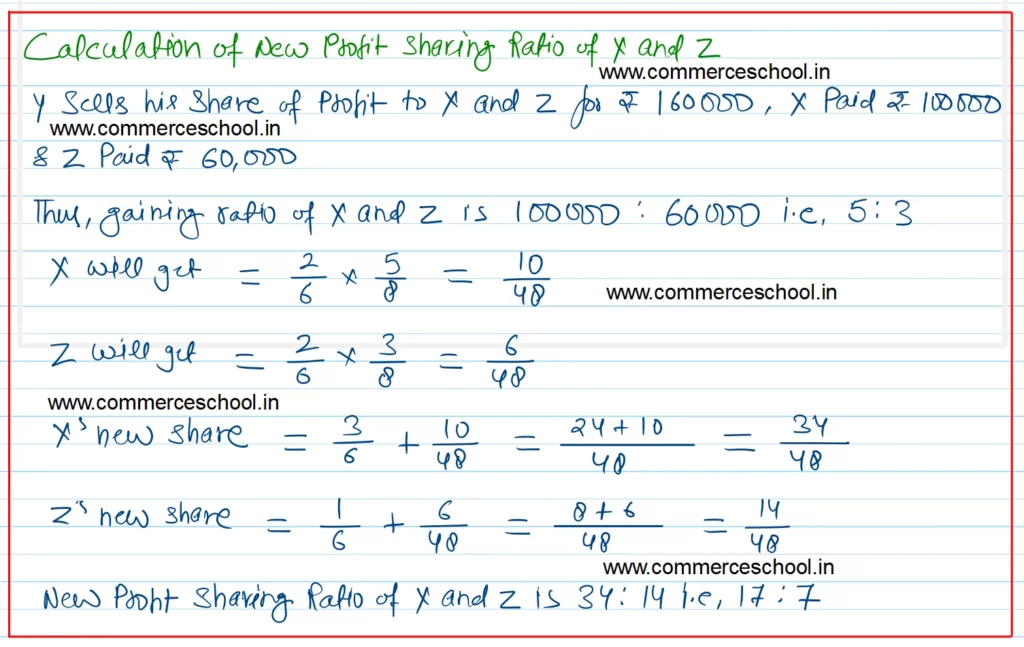 Calculation of New Profit Sharing Ratio of X and Z
www.commerceschool.in
Y Sells his Share of Profit to X and Z for ₹ 160000, X Paid ₹ 100000
www.commerceschool.in
& Z Paid ₹ 60,000
Thus, gaining ratio of X and Z is 100000 : 60000 i.e, 5 : 3
X will get = 2/6 × 5/8 = 10/48
www.commerceschool.in
Z will get = 2/6 × 3/8 = 6/48
www.commerceschool.in
X's new share = 3/6 + 10/48 = 24 + 10/48 = 34/48
Z's new share = 1/6 + 6/48 = 8 + 6/48 = 14/48
www.commerceschool.in
New Profit Sharing Ratio of X and Z is 34 : 14 i.e, 17 : 7